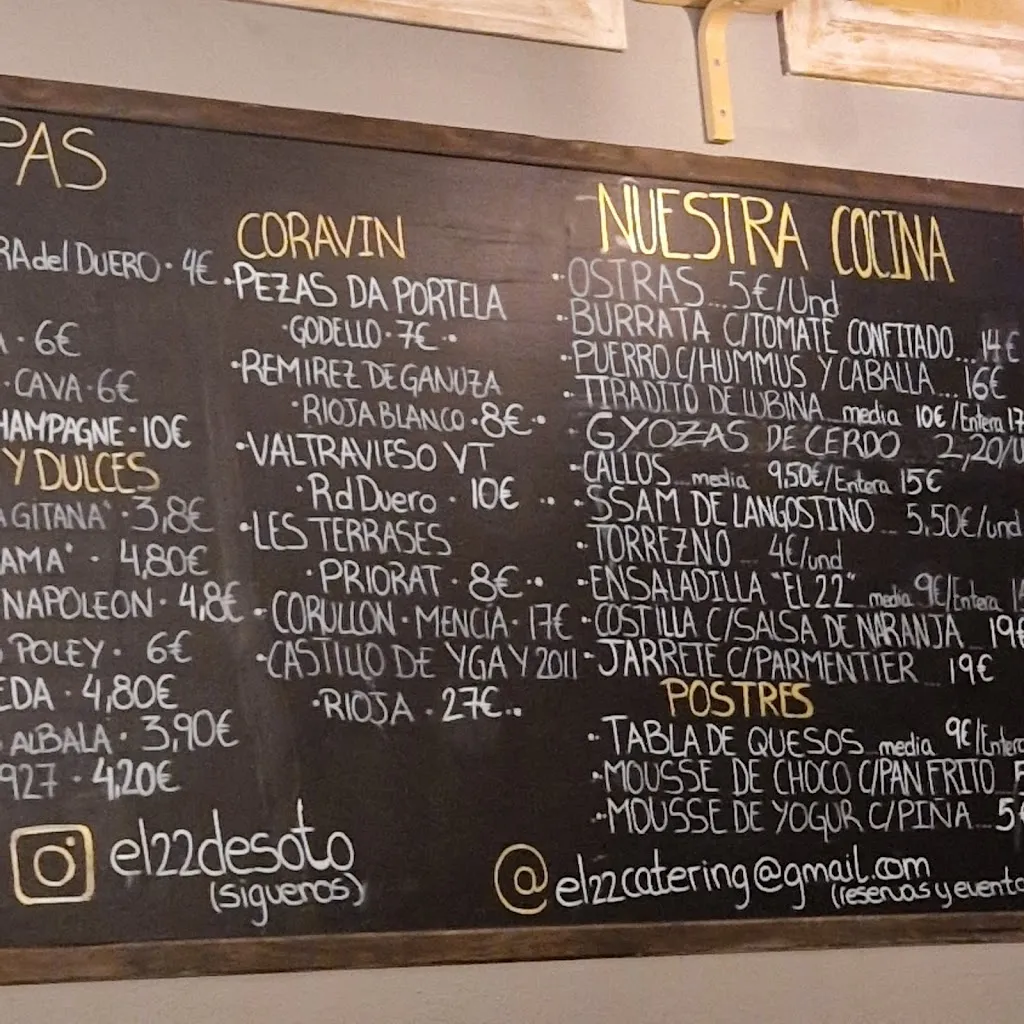 PAS
RA del DUERO · 4€
A · 6€
· CAVA · 6€
HAMPAGNE · 10€
Y DULCES
A GITANA" · 3,8€
AMA" · 4,80€
NAPOLEON · 4,8€
POLEY · 6€
EDA · 4,80€
ALBALA · 3,90€
927 · 4,20€
el22desoto
(siguenos)
CORAVIN
· PEZAS DA PORTELA
· GODELLO · 7€ ·
· REMIREZ DE GANUZA
· RIOJA BLANCO · 8€ ·
· VALTRAVIESO VT
· Rd Duero · 10€ ..
· LES TERRASES
· PRIORAT · 8€ ..
· CORULLON · MENCÍA · 17€
· CASTILLO DE YGAY 2011
· RIOJA · 27€ ..
NUESTRA COCINA
· OSTRAS ... 5€/Und
· BURRATA C/TOMATE CONFITADO ... 14€
· PUERRO C/HUMMUS Y CABALLA ... 16€
· TIRADITO DE LUBINA media 10€/Entera 17
· GYOZAS DE CERDO 2,20/U
· CALLOS ... media 9,50€/Entera 15€
· SSAM DE LANGOSTINO ... 5,50€/und
· TORREZNO 4€/und
· ENSALADILLA "EL 22" ... media 9€/Entera 1
· COSTILLA C/SALSA DE NARANJA ... 19€
· JARRETE C/PARMENTIER ... 19€
POSTRES
· TABLA DE QUESOS media 9€/Entera
· MOUSSE DE CHOCO C/PAN FRITO
· MOUSSE DE YOGUR C/PIÑA ... 5€
@ el22catering@gmail.com
(reservas y evento